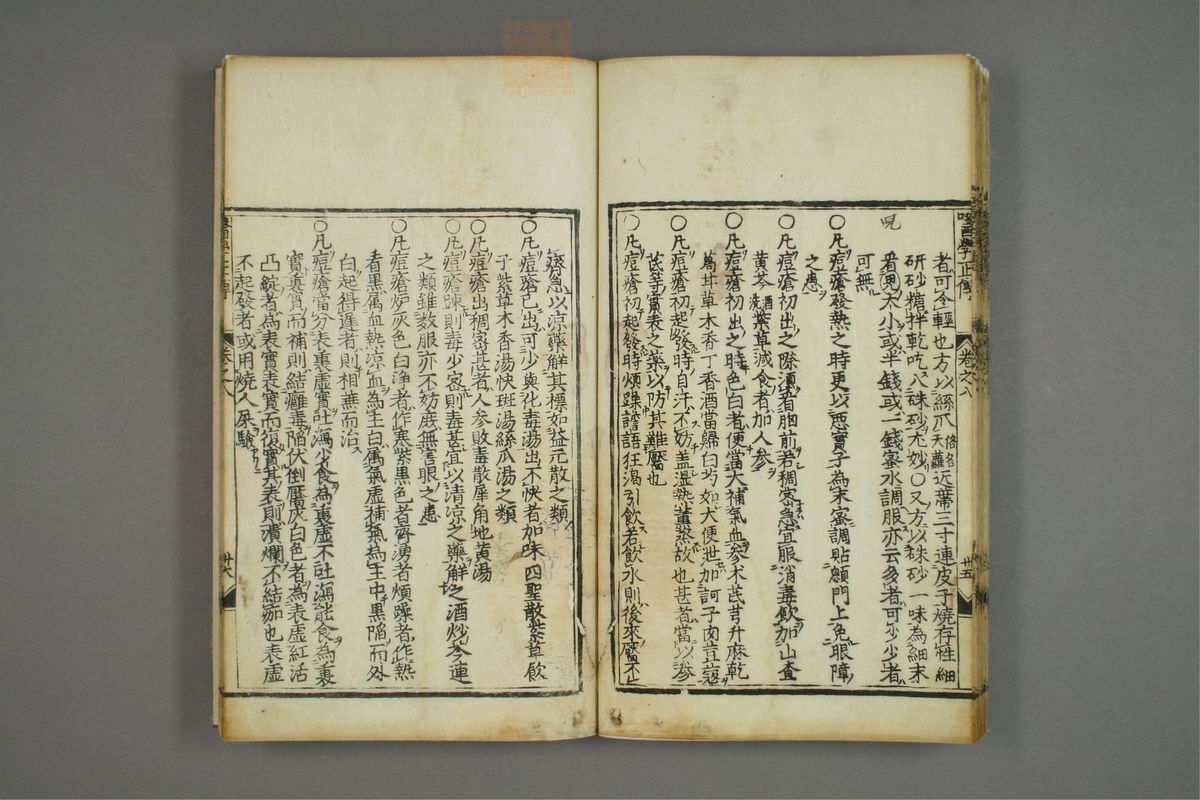 醫學正傳
卷之八
廿五
者可令輕也方以絲瓜俗名天蘿近蒂三寸連皮子燒存性細
研砂糖拌乾吃入硃砂尤妙〇又方以硃砂一味為細末
看兒大小或半錢或一錢蜜水調服亦云多者可少少者
可無
〇凡痘瘡發熱之時更以惡實子為末蜜調貼顖門上免眼障
之患
〇凡痘瘡初出之際須看胸前若稠密急宜服消毒飲加山查
黃芩酒洗紫草減食者加人參
〇凡痘瘡初出之時色白者便當大補氣血參术芪芎升麻乾
葛甘草木香丁香酒當歸白芍如大便泄加訶子肉豆蔻
〇凡痘瘡初起發時自汗不妨盖溫熱薰蒸故也甚者當以參
芪等實表之藥以防其難靨也
〇凡痘瘡初起發時煩躁譫語狂渴引飲若飲水則後來靨不
齊急以涼藥解其標如益元散之類
〇凡痘瘡已出可少與化毒湯出不快者加味四聖散紫草飲
子紫草木香湯快斑湯絲瓜湯之類
〇凡痘瘡出稠密甚者人參敗毒散犀角地黃湯
〇凡痘瘡踈則毒少密則毒甚宜以清涼之藥解之酒炒芩連
之類雖数服亦不妨庶無害眼之患
〇凡痘瘡炉灰色白淨者作寒紫黑色者齊湧者煩躁者作熱
看黑属血熱涼血為主白属氣虛補氣為主中黑陷而外
白起得遲者則相蕪而治
〇凡痘瘡當分表裏虛實吐瀉少食為裏虛不吐瀉能食為裏
實裏實而補則結癰毒陷伏倒靨灰白色者為表虛紅活
凸綻者為表實表實而復實其表則潰爛不結痂也表虛
不起發者或用燒人屎驗
卷之八
廿六